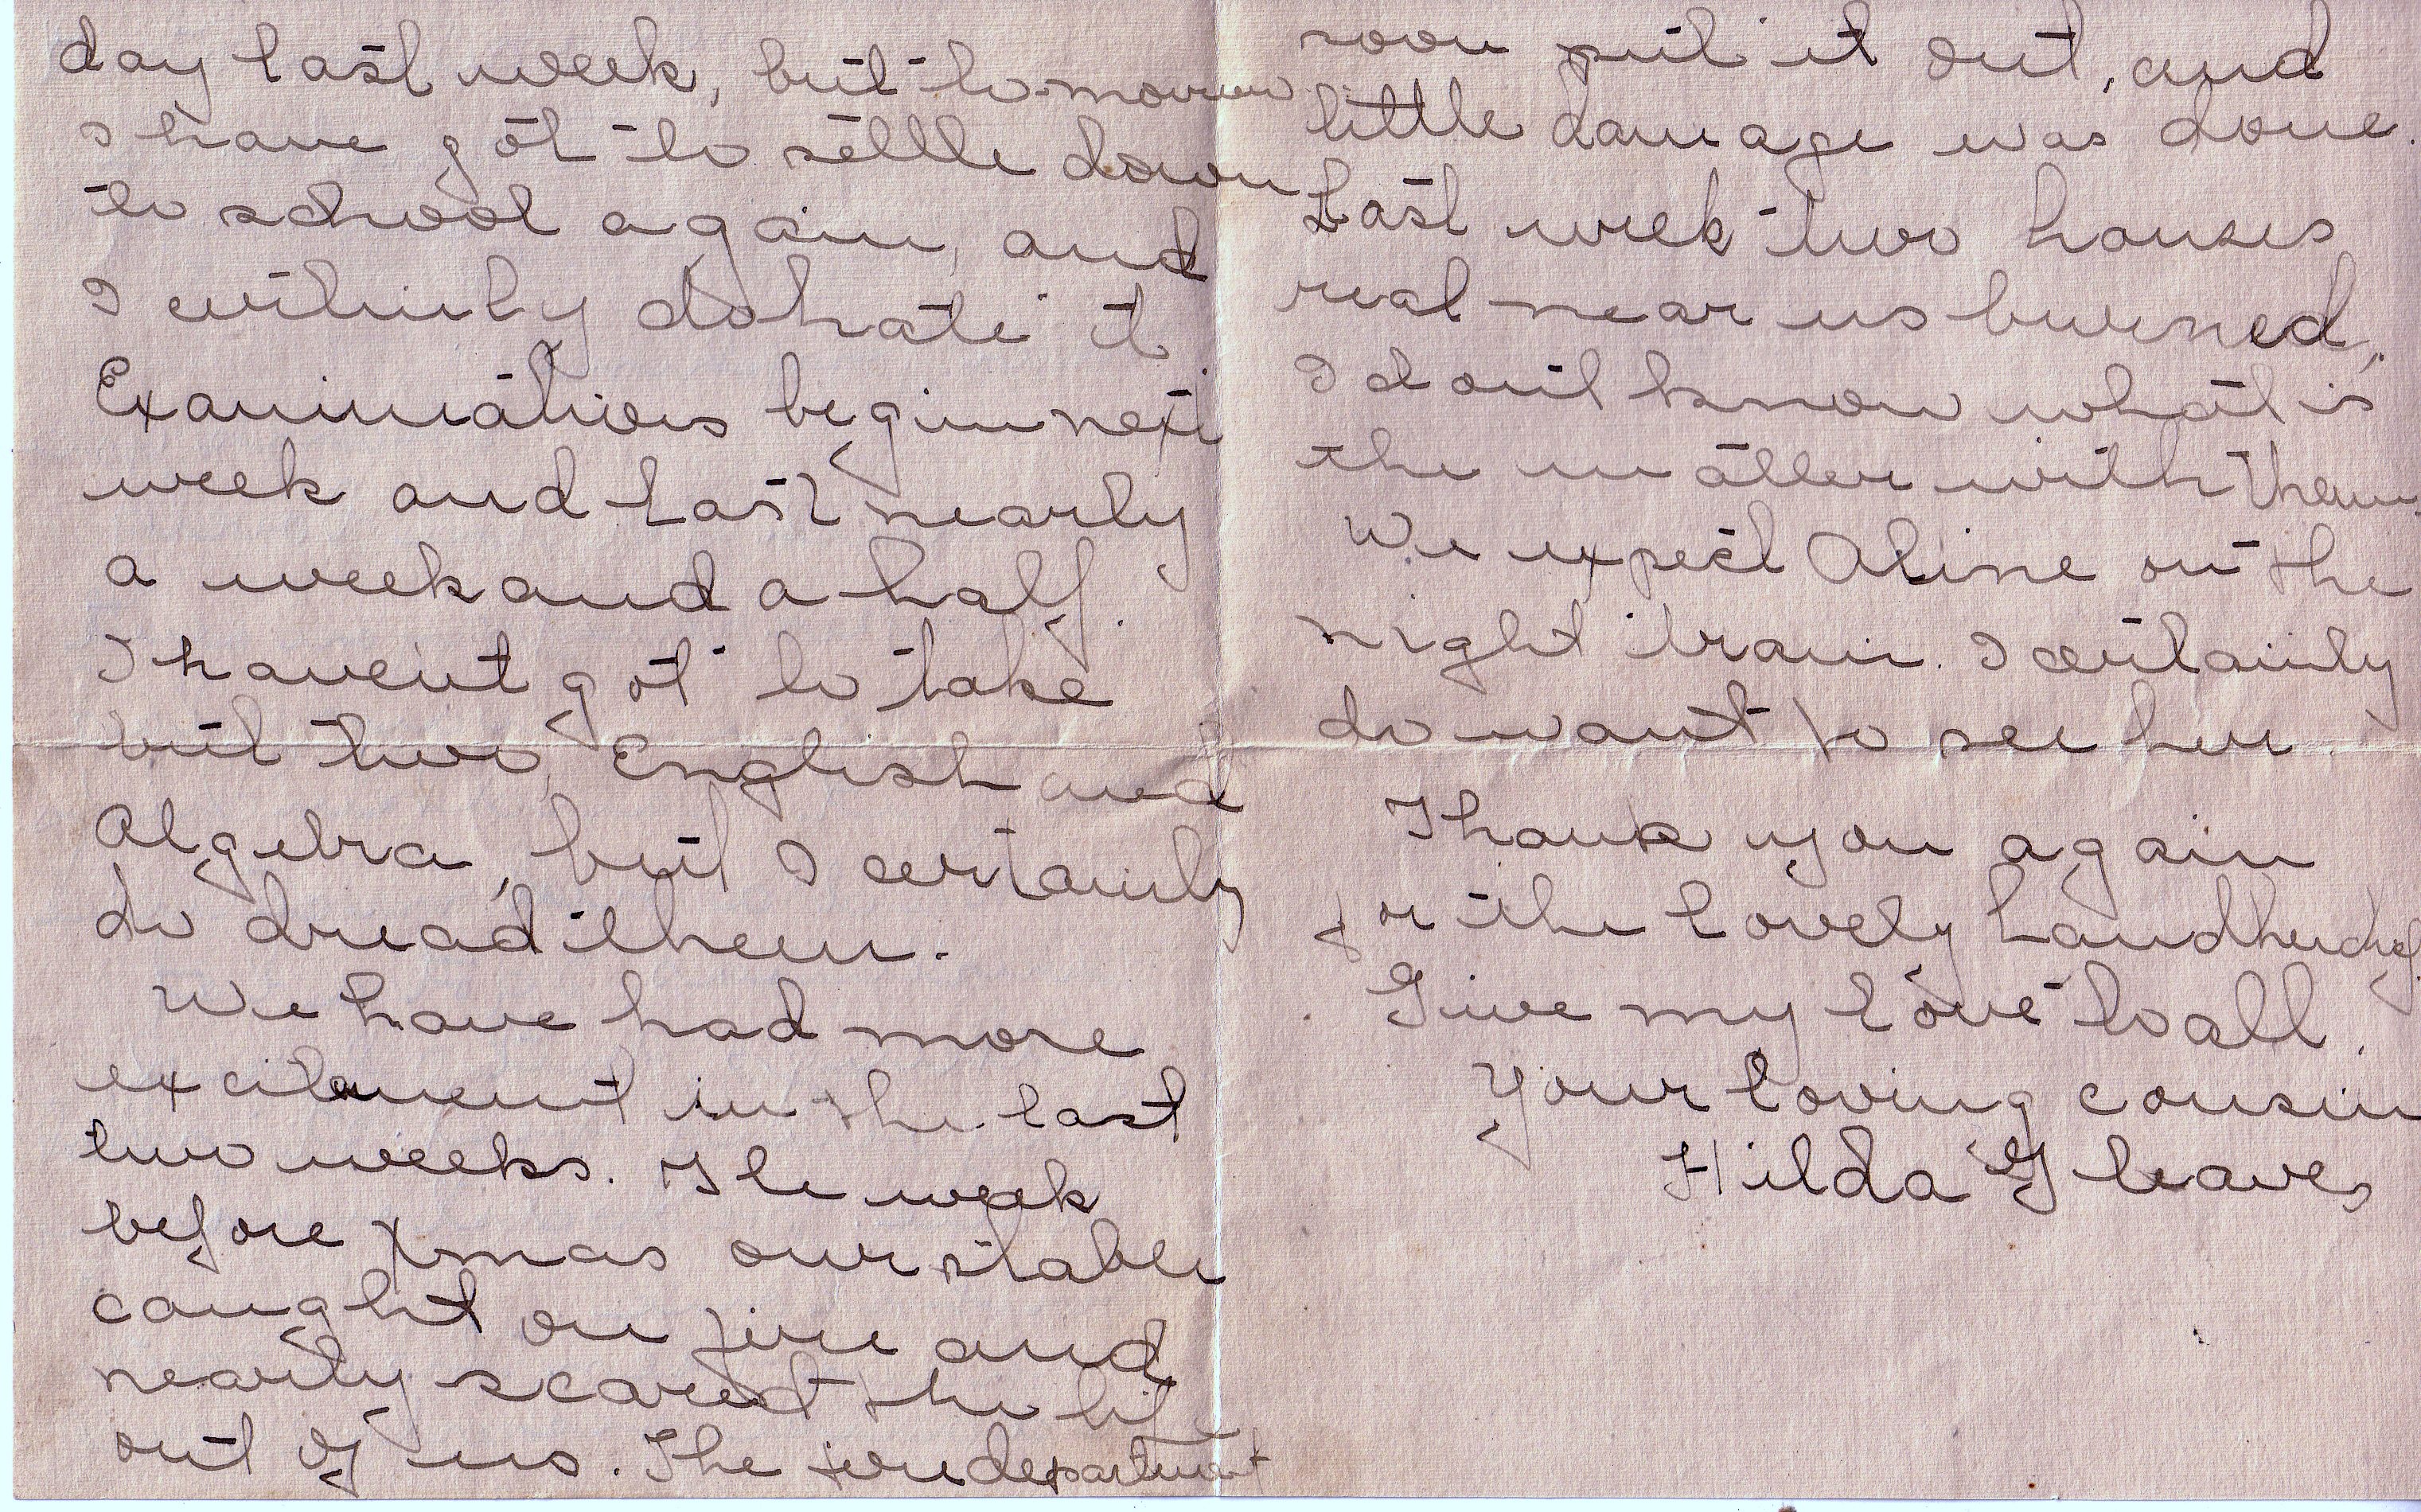 day last week, but to-morrow
I have got to settle down
to school again, and
I certainly do hate it
Examinations begin next
week and last nearly
a week and a half.
I haven't got to take
but two, English and
Algebra, but I certainly
do dread them.
We have had more
excitement in the last
two weeks. The week
before Xmas our stable
caught on fire and
nearly scared the life
out of us. The fire department
soon put it out, and
little damage was done.
Last week two houses
real near us burned,
I don't know what is
the matter with them.
We expect Aline on the
night train. I certainly
do want to see her.
Thank you again
for the lovely handkerchief.
Give my love to all.
Your loving cousin
Hilda Gleaves